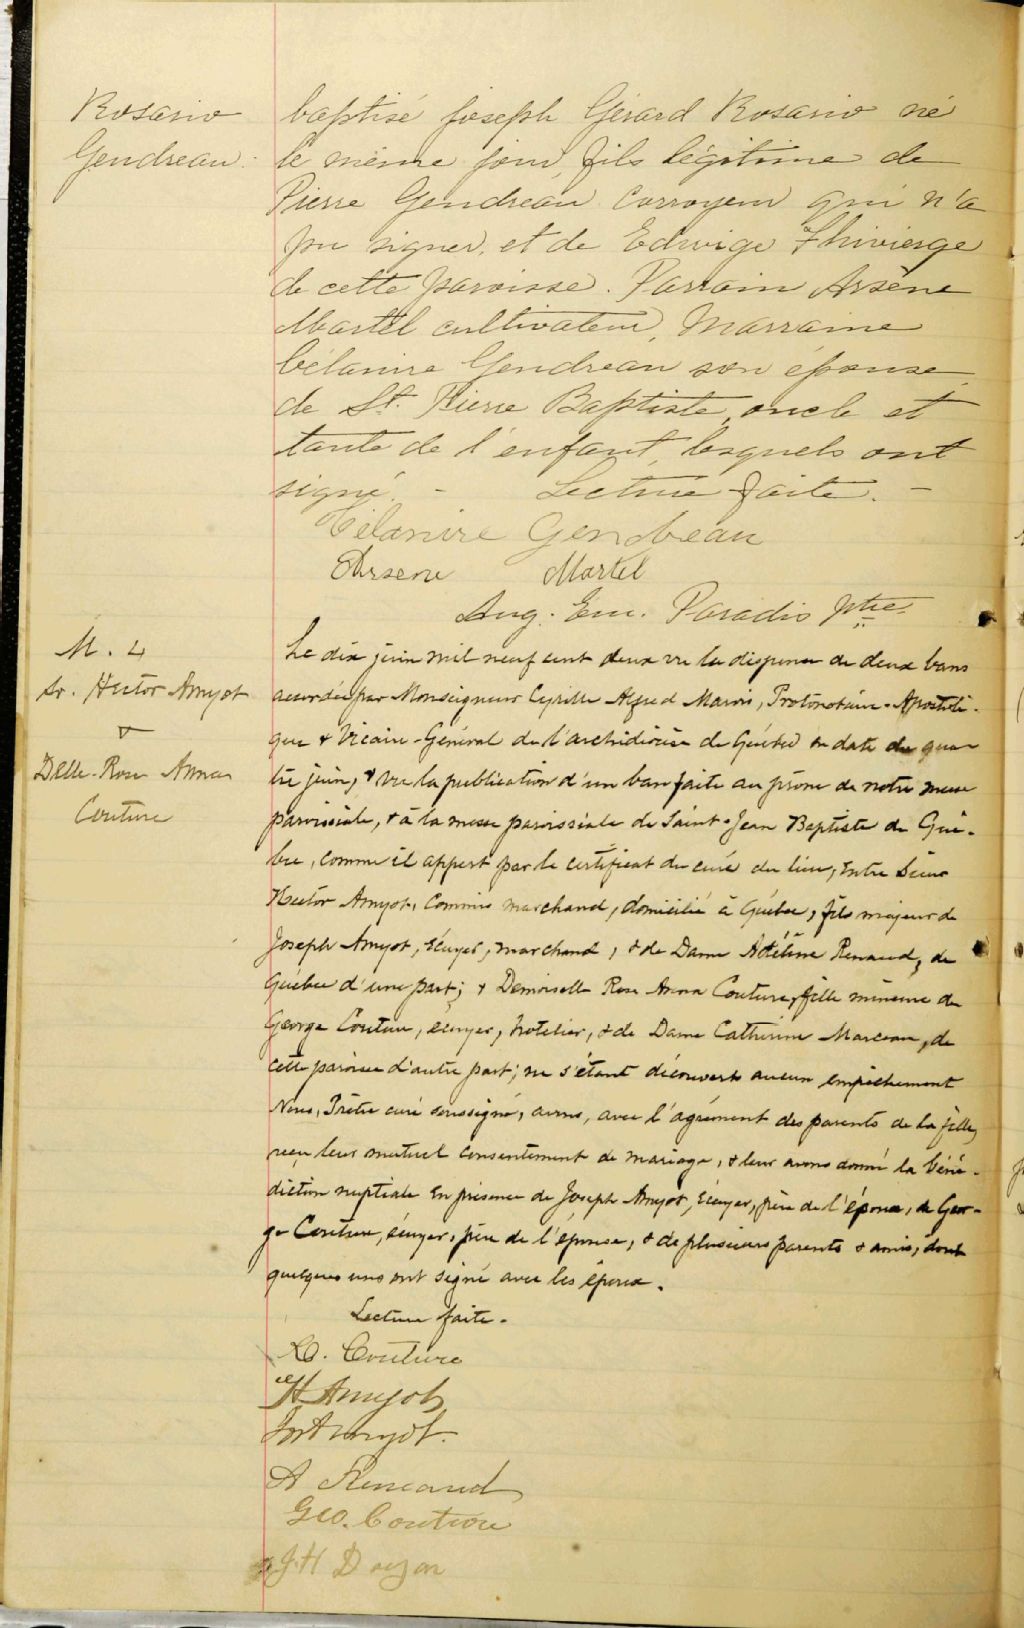 Rosario
Gendreau.
baptisé Joseph Gérard Rosario né
le même jour, fils légitime de
Pierre Gendreau Corroyeur qui n'a
pu signer, et de Edwige Thivierge
de cette paroisse. Parrain Arsène
Martel cultivateur, Marraine
Célanire Gendreau son épouse
de St. Pierre Baptiste, oncle et
tante de l'enfant, lesquels ont
signé. - Lecture faite. -
Célanire Gendreau
Arsene Martel
Aug. Em. Paradis ptre
M. 4
Sr. Hector Amyot
&
Delle. Rose Anna
Couture
Le dix juin mil neuf cent deux vu la dispense de deux bans
accordée par Monseigneur Cyrille Alfred Marois, Protonotaire-Apostoli-
que & Vicaire-Général de l'archidiocèse de Québec en date du qua-
tre juin, & vu la publication d'un ban faite au prône de notre messe
paroissiale, & à la messe paroissiale de Saint-Jean Baptiste de Qué-
bec, comme il appert par le certificat du curé du lieu, entre Sieur
Hector Amyot, Commis marchand, domicilié à Québec, fils majeur de
Joseph Amyot, écuyer, marchand, & de Dame Adéline Renaud, de
Québec d'une part; & Demoiselle Rose Anna Couture, fille mineure de
George Couture, écuyer, hotelier, & de Dame Catherine Marceau, de
cette paroisse d'autre part; ne s'étant découvert aucun empêchement
Nous, Prêtre curé soussigné, avons, avec l'agrément des parents de la fille,
reçu leur mutuel consentement de mariage, & leur avons donné la béné-
diction nuptiale en présence de Joseph Amyot, écuyer, père de l'époux, de Geor-
ge Couture, écuyer, père de l'épouse, & de plusieurs parents & amis, dont
quelques uns ont signé avec les époux.
Lecture faite.
R. Couture
H Amyot
Jos Amyot.
A Renaud
Geo. Couture
J. H